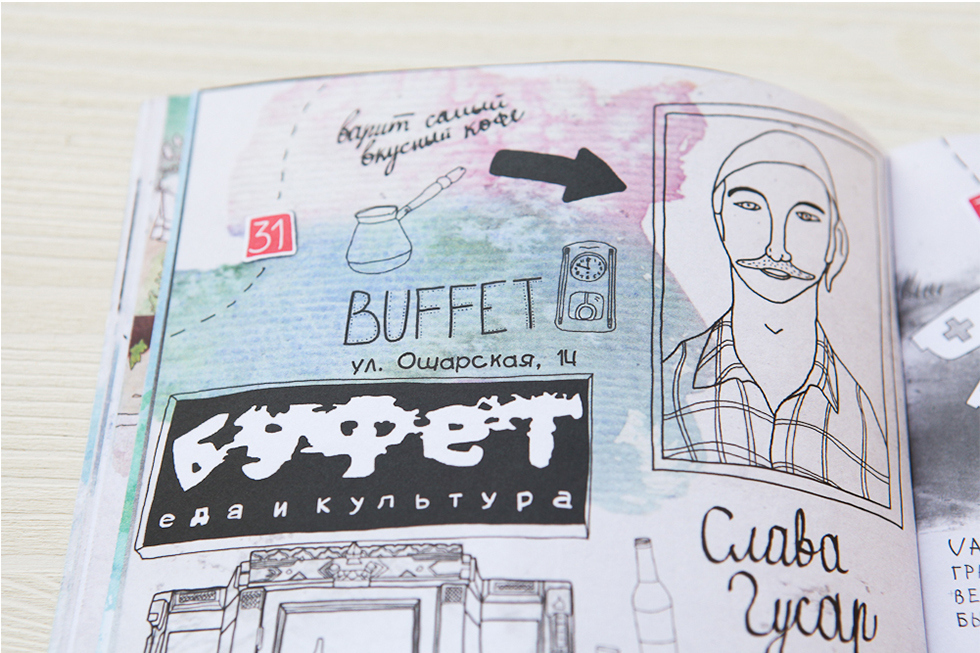 варит самый
вкусный кофе
31
BUFFET
ул. Ощарская, 14
буфет
еда и культура
Слава
Гусар
VA
ГР
ВЕ
БЫ